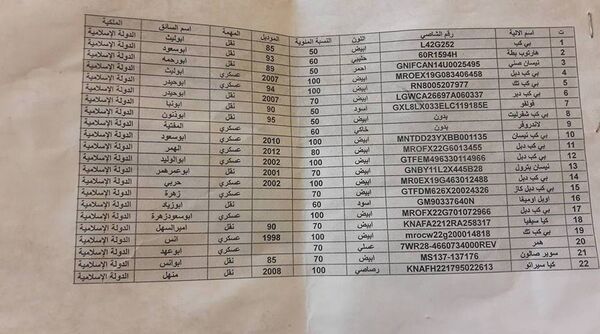 ت اسم الالية رقم الشاصي اللون النسبة المئوية الموديل المهمة اسم السائق الملكية
1 بي كب L42G252 ابيض 50 85 نقل ابوليث الدولة الإسلامية
2 هارتوب بطة 60R1594H حليبي نقل ابوسعود الدولة الإسلامية
3 نيسان صني GNIFCAN14U0025495 احمر 93 نقل ابورحمه الدولة الإسلامية
4 بي كب دبل MROEX19G083406458 ابيض 89 ابوليث الدولة الإسلامية
5 بي كب تك RN8005207977 ابيض 2007 عسكري ابوحيدر الدولة الإسلامية
6 بي كب دبر LGWCA26697A060337 ابيض 94 ابوحيدر الدولة الإسلامية
7 فولفو GXL8LX033ELC119185E اسود 2007 الدولة الإسلامية
8 بي كب شفرليت بدون ابيض 90 نقل ابوذنون الدولة الإسلامية
9 لاندروفر بدون خاكي 60 95 المفتية الدولة الإسلامية
10 بي كب نيسان MNTDD23YXBB001135 ابيض 100 2010 عسكري ابوسعود الدولة الإسلامية
11 بي كب دبل MROFX22G6013455 ابيض 80 2012 عسكري الهمر الدولة الإسلامية
12 بي كب دبل GTFEM496330114966 ابيض 100 2002 عسكري ابوالوليد الدولة الإسلامية
13 نيسان بترول GNBY11L2X445B28 ابيض نقل ابوعمرهمر الدولة الإسلامية
14 بي كب دبل MR0EX19G463012488 ابيض 100 2002 عسكري حربي الدولة الإسلامية
15 بي كب دبل كاز GTFDM626X20024326 ابيض 70 عسكري زهرة الدولة الإسلامية
16 اوبل اوميغا GM90337640N اسود 60 نقل ابوزياد الدولة الإسلامية
17 بي كب دبل MROFX22G701072966 ابيض 100 عسكري ابوسعودزهرة الدولة الإسلامية
18 كيا سيفيا KNAFA2212RA258317 ابيض 90 نقل اميرالسهل الدولة الإسلامية
19 بي كب تك mrocw22g200014818 ابيض 100 1998 عسكري انس الدولة الإسلامية
20 همر 7WR28-4660734000REV عسلي 70 عسكري ابوعهد الدولة الإسلامية
21 سوبر صالون MS137-137176 ابيض 70 85 نقل ابوانس الدولة الإسلامية
22 كيا سيراتو KNAFH221795022613 رصاصي 100 2008 نقل منهل الدولة الإسلامية